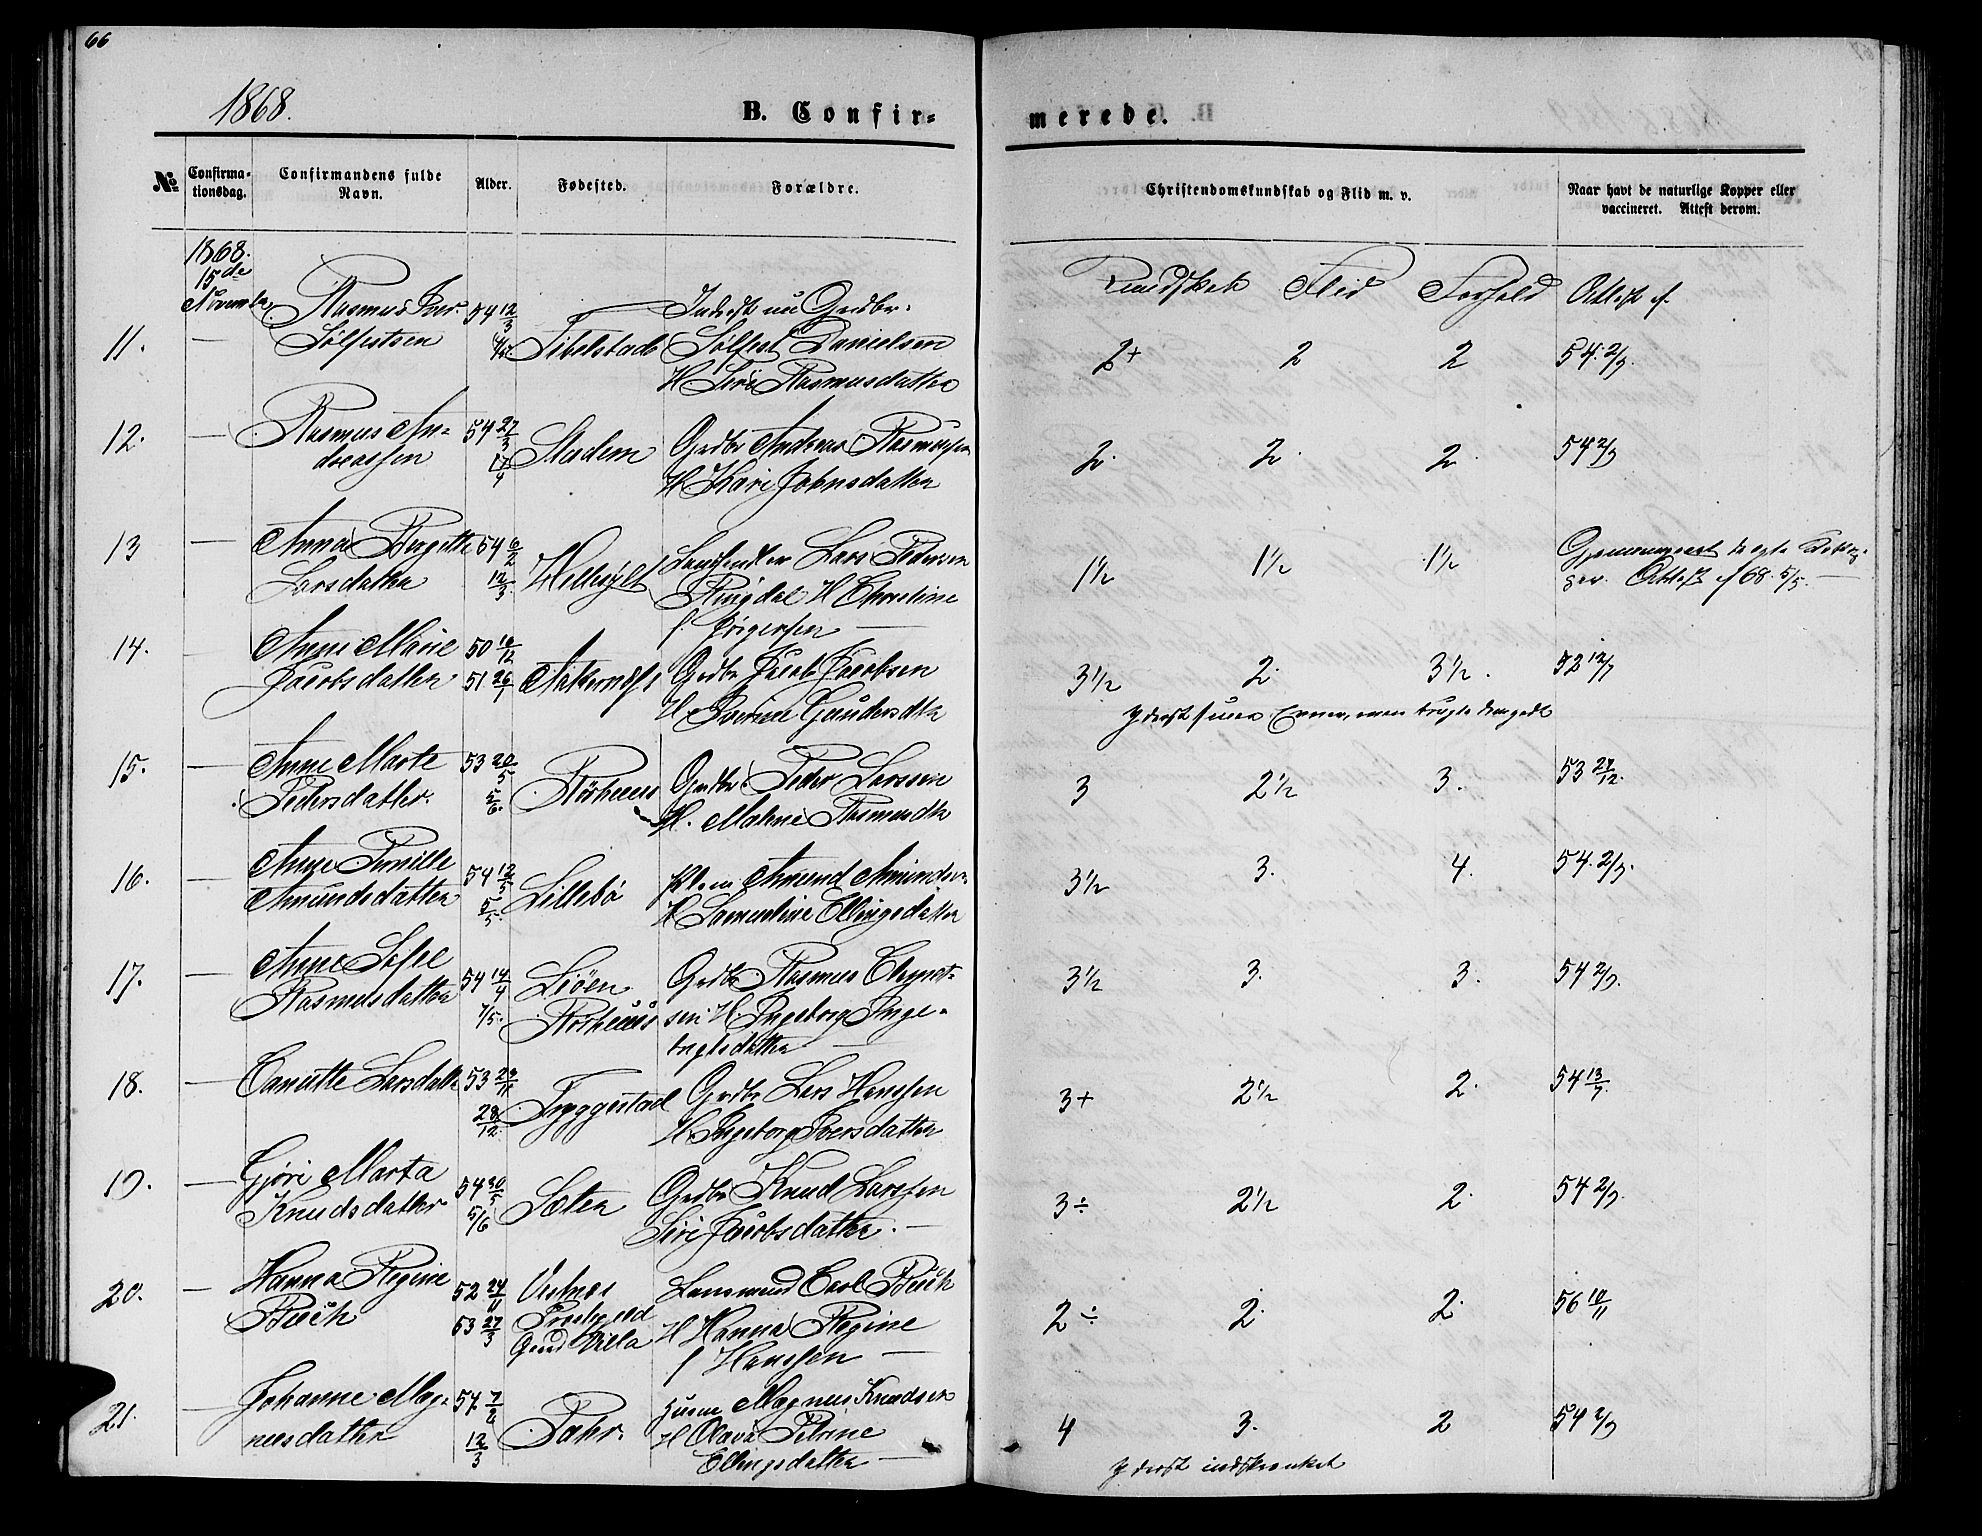 66
1868.
B. Confir-
merede.
№
Confirma-
tionsdag.
Confirmandens fulde
Navn.
Alder.
Fødested.
Forældre.
Christendomskundskab og Flid m. v.
Naar havt de naturlige Kopper eller
vaccineret. Attest derom.
1868.
15de
November
Kundskab Flid Forhold Attest af
11. — Rasmus Iver
Sølfestsen
54 12/3
Fibelstad
Sølfest Danielsen
H Siri Rasmusdatter
2+ 2 2 54. 2/9.
12. — Rasmus An-
dreassen
54 27/3
17/4
Stadem
Grdbr Andreas Rasmussen
H Kari Johnsdatter
2. 2. 2. 54 2/9
13 — Anna Birgitte
Larsdatter
54 6/2
12/3.
Hellesylt
Landhandler Lars Pedersen
Ringdal H Christine
f. Jörgensen —
1½ 1½ 1½
Attest af 68. 5/5. —
14. — Anne Marie
Jacobsdatter
50 16/12
51 26/1
Grdbr Jacob Jacobsen
3½ 2. 3½. 52 12/7
15. — Anne Marte
Pedersdatter.
53 20/5
5/6.
Korshuus
Grdbr. Peder Larssen
H. Malene Rasmusdtr
3 2½ 3. 53 27/12.
16. — Anne Pernille
Amundsdatter
54 12/3
5/5.
Lillebö
Amund Amundsen
H Samueline Ellingsdatter
3½ 3. 4. 54. 2/9.
17. — Anne Sofie
Rasmusdatter
54 14/4
7/5.
Liöen
Korshuus
Grdbr Rasmus Chyrst-
sen H. Ingeborg Inge-
brigtsdatter —
3½ 3. 3. 54 2/9.
18. — Canutte Larsdatter
53 29/11
28/12.
Tryggestad
Grdbr Lars Hanssen
H Ingeborg Iversdatter
3+ 2½ 2. 54 13/7.
19. — Gjöri Marta
Knudsdatter
54 30/5
5/6
Sæter
Grdbr Knud Larssen
Siri Jacobsdatter. —
3÷ 2½ 2. 54 2/9.
20. — Hanna Regine
Buch
52 24/11
53 27/3
Vestnes
Præstegjeld
Gaard Villa
Lensmand Carl Buch
H Hanna Regine
f Hanssen —
2÷ 2. 2. 56 10/11
21. — Johanne Mag-
nusdatter
54 7/2
12/3
Fahr.
Husm Magnus Knudsen
H Olava Petrine
Ellingsdatter —
4 3. 2 54 2/9
Yderst indskrænket